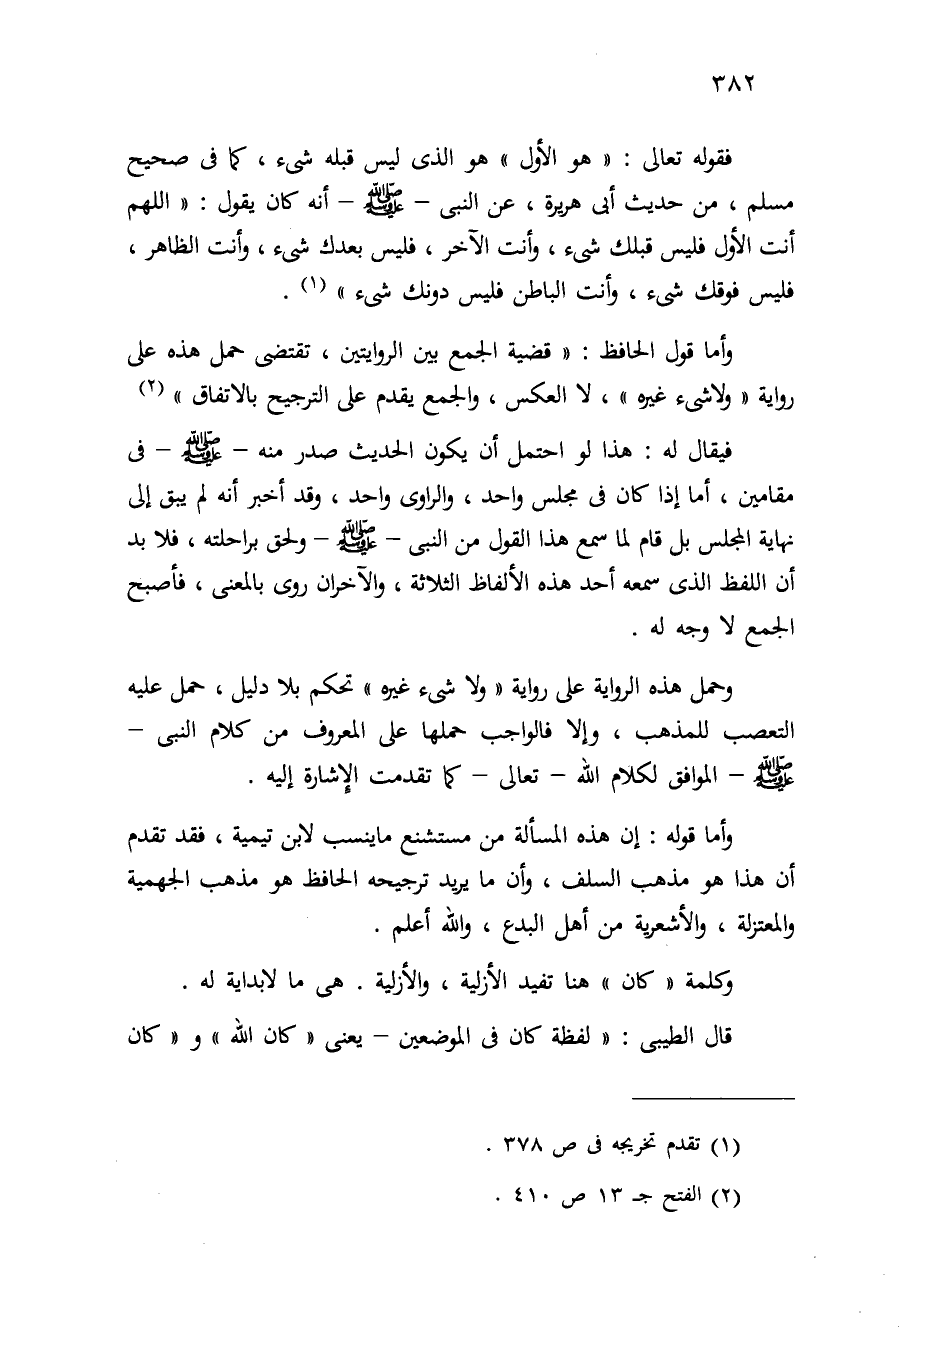 ٣٨٢
فقوله تعالى : « هو الأول » هو الذى ليس قبله شىء ، كما فى صحيح
مسلم ، من حديث أبى هريرة ، عن النبى – ﷺ – أنه كان يقول : « اللهم
أنت الأول فليس قبلك شىء ، وأنت الآخر ، فليس بعدك شىء ، وأنت الظاهر ،
فليس فوقك شىء ، وأنت الباطن فليس دونك شىء » (١) .
وأما قول الحافظ : « قضية الجمع بين الروايتين ، تقتضى حمل هذه على
رواية « ولاشىء غيره » ، لا العكس ، والجمع يقدم على الترجيح بالاتفاق » (٢)
فيقال له : هذا لو احتمل أن يكون الحديث صدر منه – ﷺ – فى
مقامين ، أما إذا كان فى مجلس واحد ، والراوى واحد ، وقد أخبر أنه لم يبق إلى
نهاية المجلس بل قام لما سمع هذا القول من النبى – ﷺ – ولحق براحلته ، فلا بد
أن اللفظ الذى سمعه أحد هذه الألفاظ الثلاثة ، والآخران روى بالمعنى ، فأصبح
الجمع لا وجه له .
وحمل هذه الرواية على رواية « ولا شىء غيره » تحكم بلا دليل ، حمل عليه
التعصب للمذهب ، وإلا فالواجب حملها على المعروف من كلام النبى –
ﷺ – الموافق لكلام الله – تعالى – كما تقدمت الإشارة إليه .
وأما قوله : إن هذه المسألة من مستشنع ماينسب لابن تيمية ، فقد تقدم
أن هذا هو مذهب السلف ، وأن ما يريد ترجيحه الحافظ هو مذهب الجهمية
والمعتزلة ، والأشعرية من أهل البدع ، والله أعلم .
وكلمة « كان » هنا تفيد الأزلية ، والأزلية . هى ما لابداية له .
قال الطيبى : « لفظة كان فى الموضعين – يعنى « كان الله » و « كان
(١) تقدم تخريجه فى ص ٣٧٨ .
(٢) الفتح جـ ١٣ ص ٤١٠ .